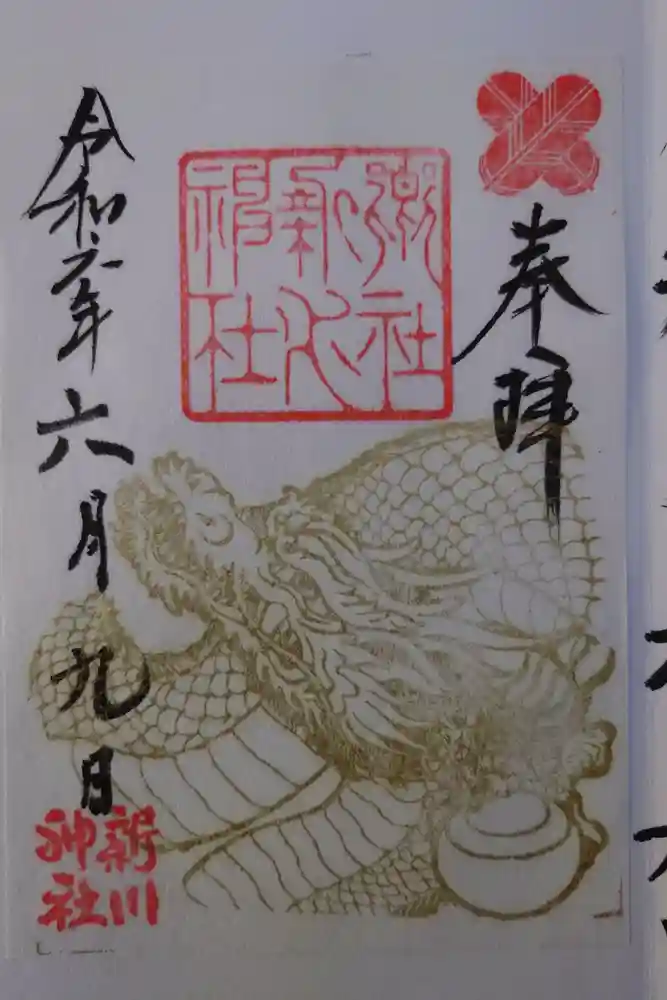 奉拝
郷社
新川
神社
令和六年六月九日
新川
神社